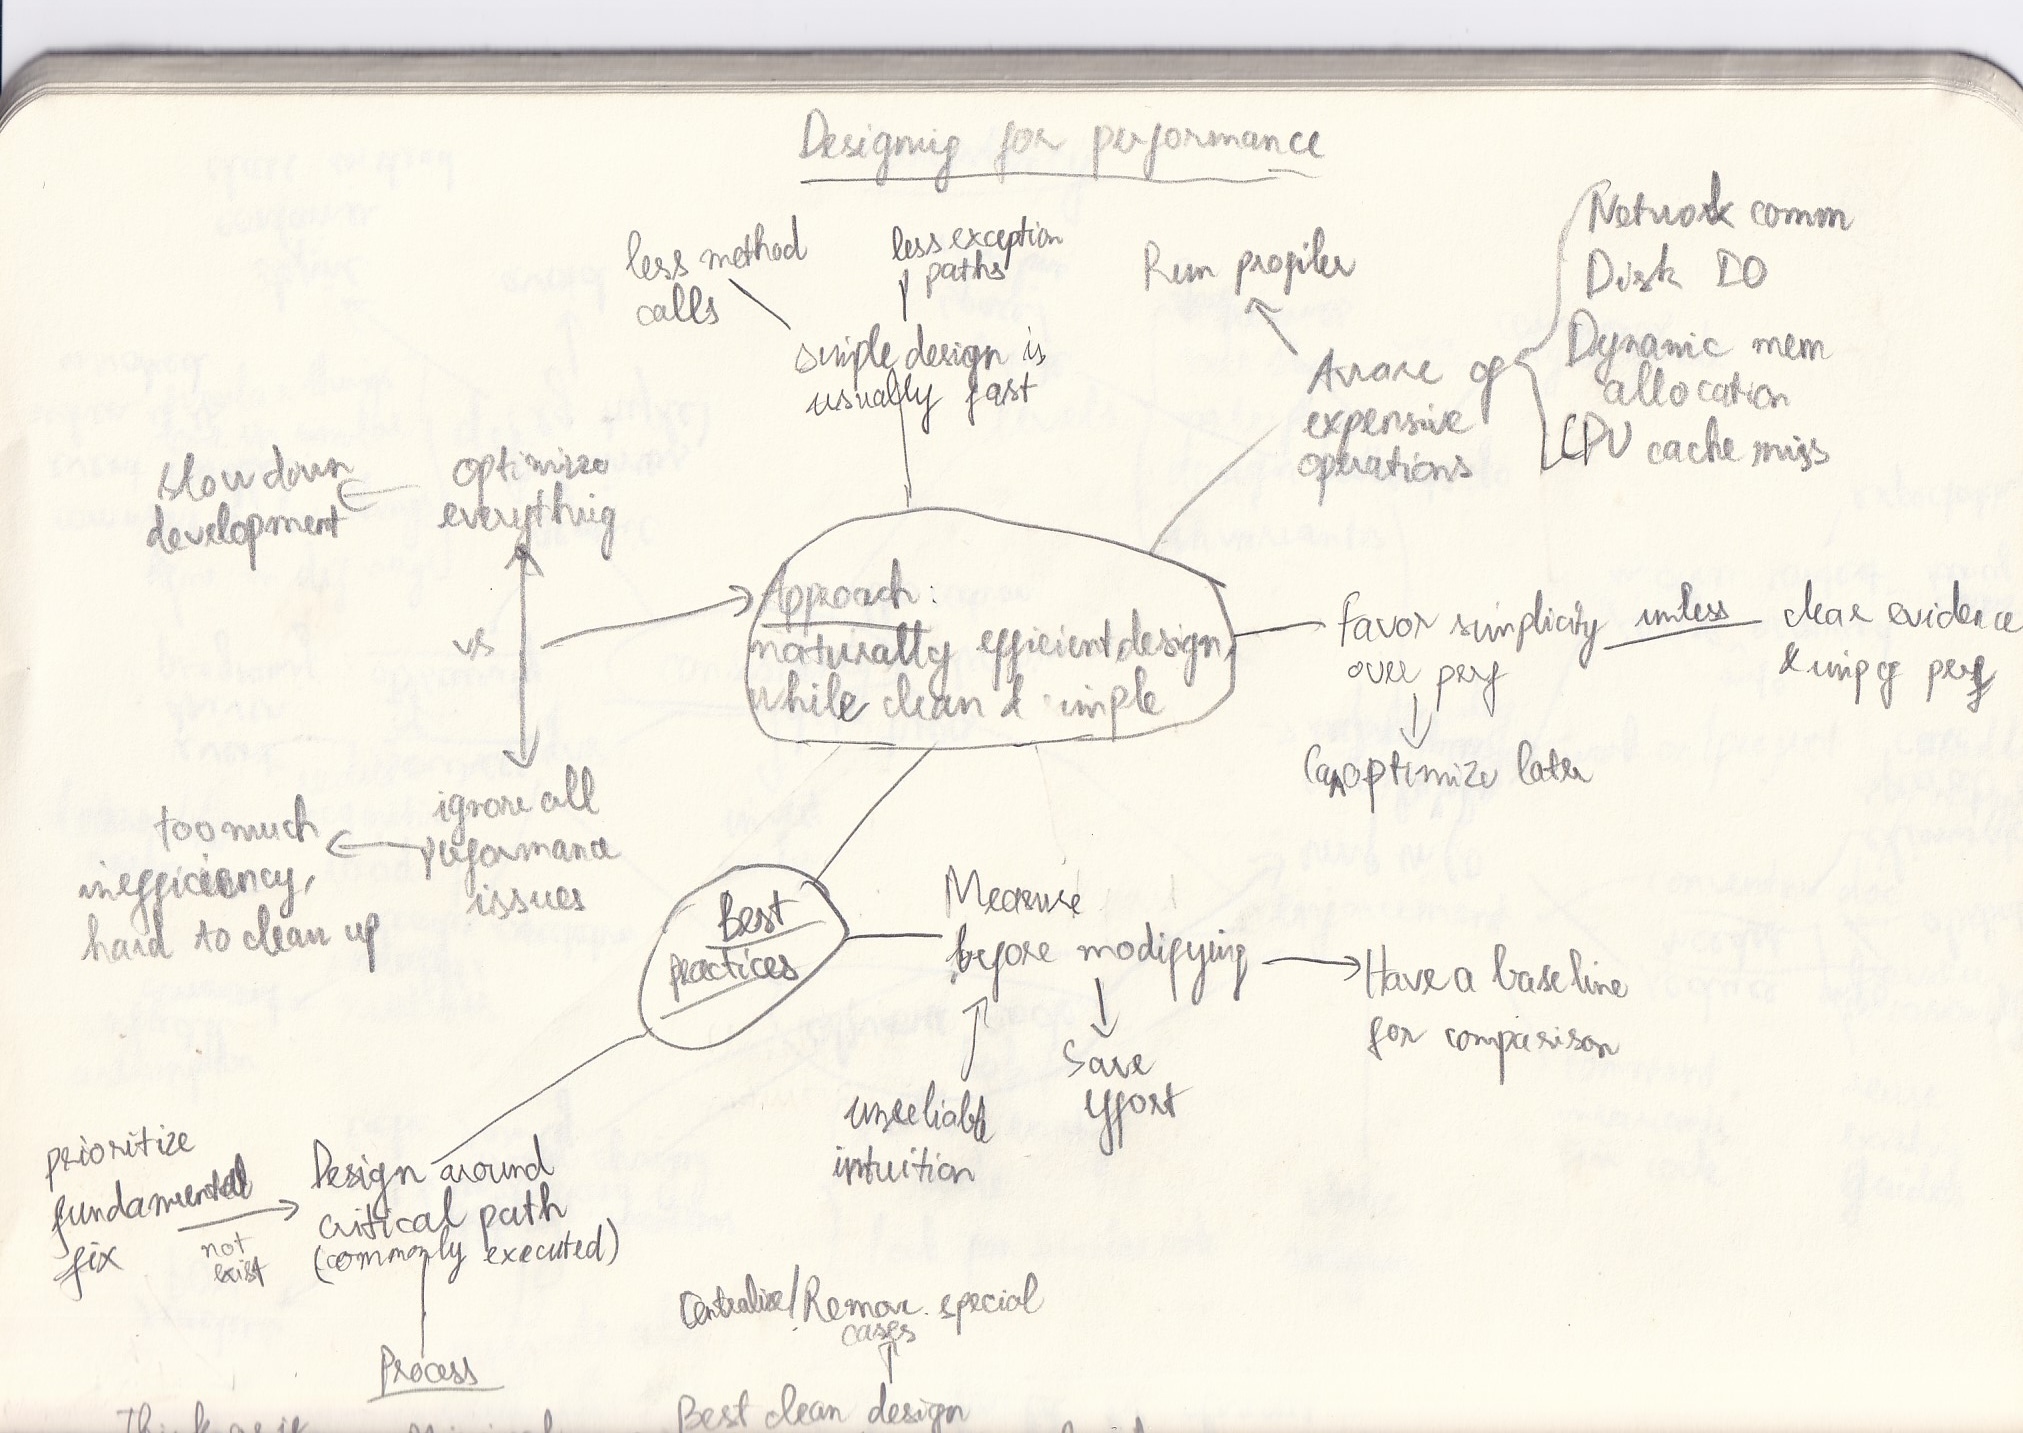 Designing for performance
less method
calls
less exception
paths
simple design is
usually fast
Run profiler
Aware of
expensive
operations
Network comm
Disk IO
Dynamic mem
allocation
CPU cache miss
slow down
development
optimize
everything
vs
ignore all
performance
issues
too much
inefficiency,
hard to clean up
Approach:
naturally efficient design,
while clean & simple
Favor simplicity
over perf
unless
clear evidence
& imp of perf
Can optimize later
Best
practices
Measure
before modifying
Have a baseline
for comparison
Save
effort
unreliable
intuition
prioritize
fundamental
fix
not
exist
Design around
critical path
(commonly executed)
Process
Centralize/Remove special
cases
Best clean design
Think as if